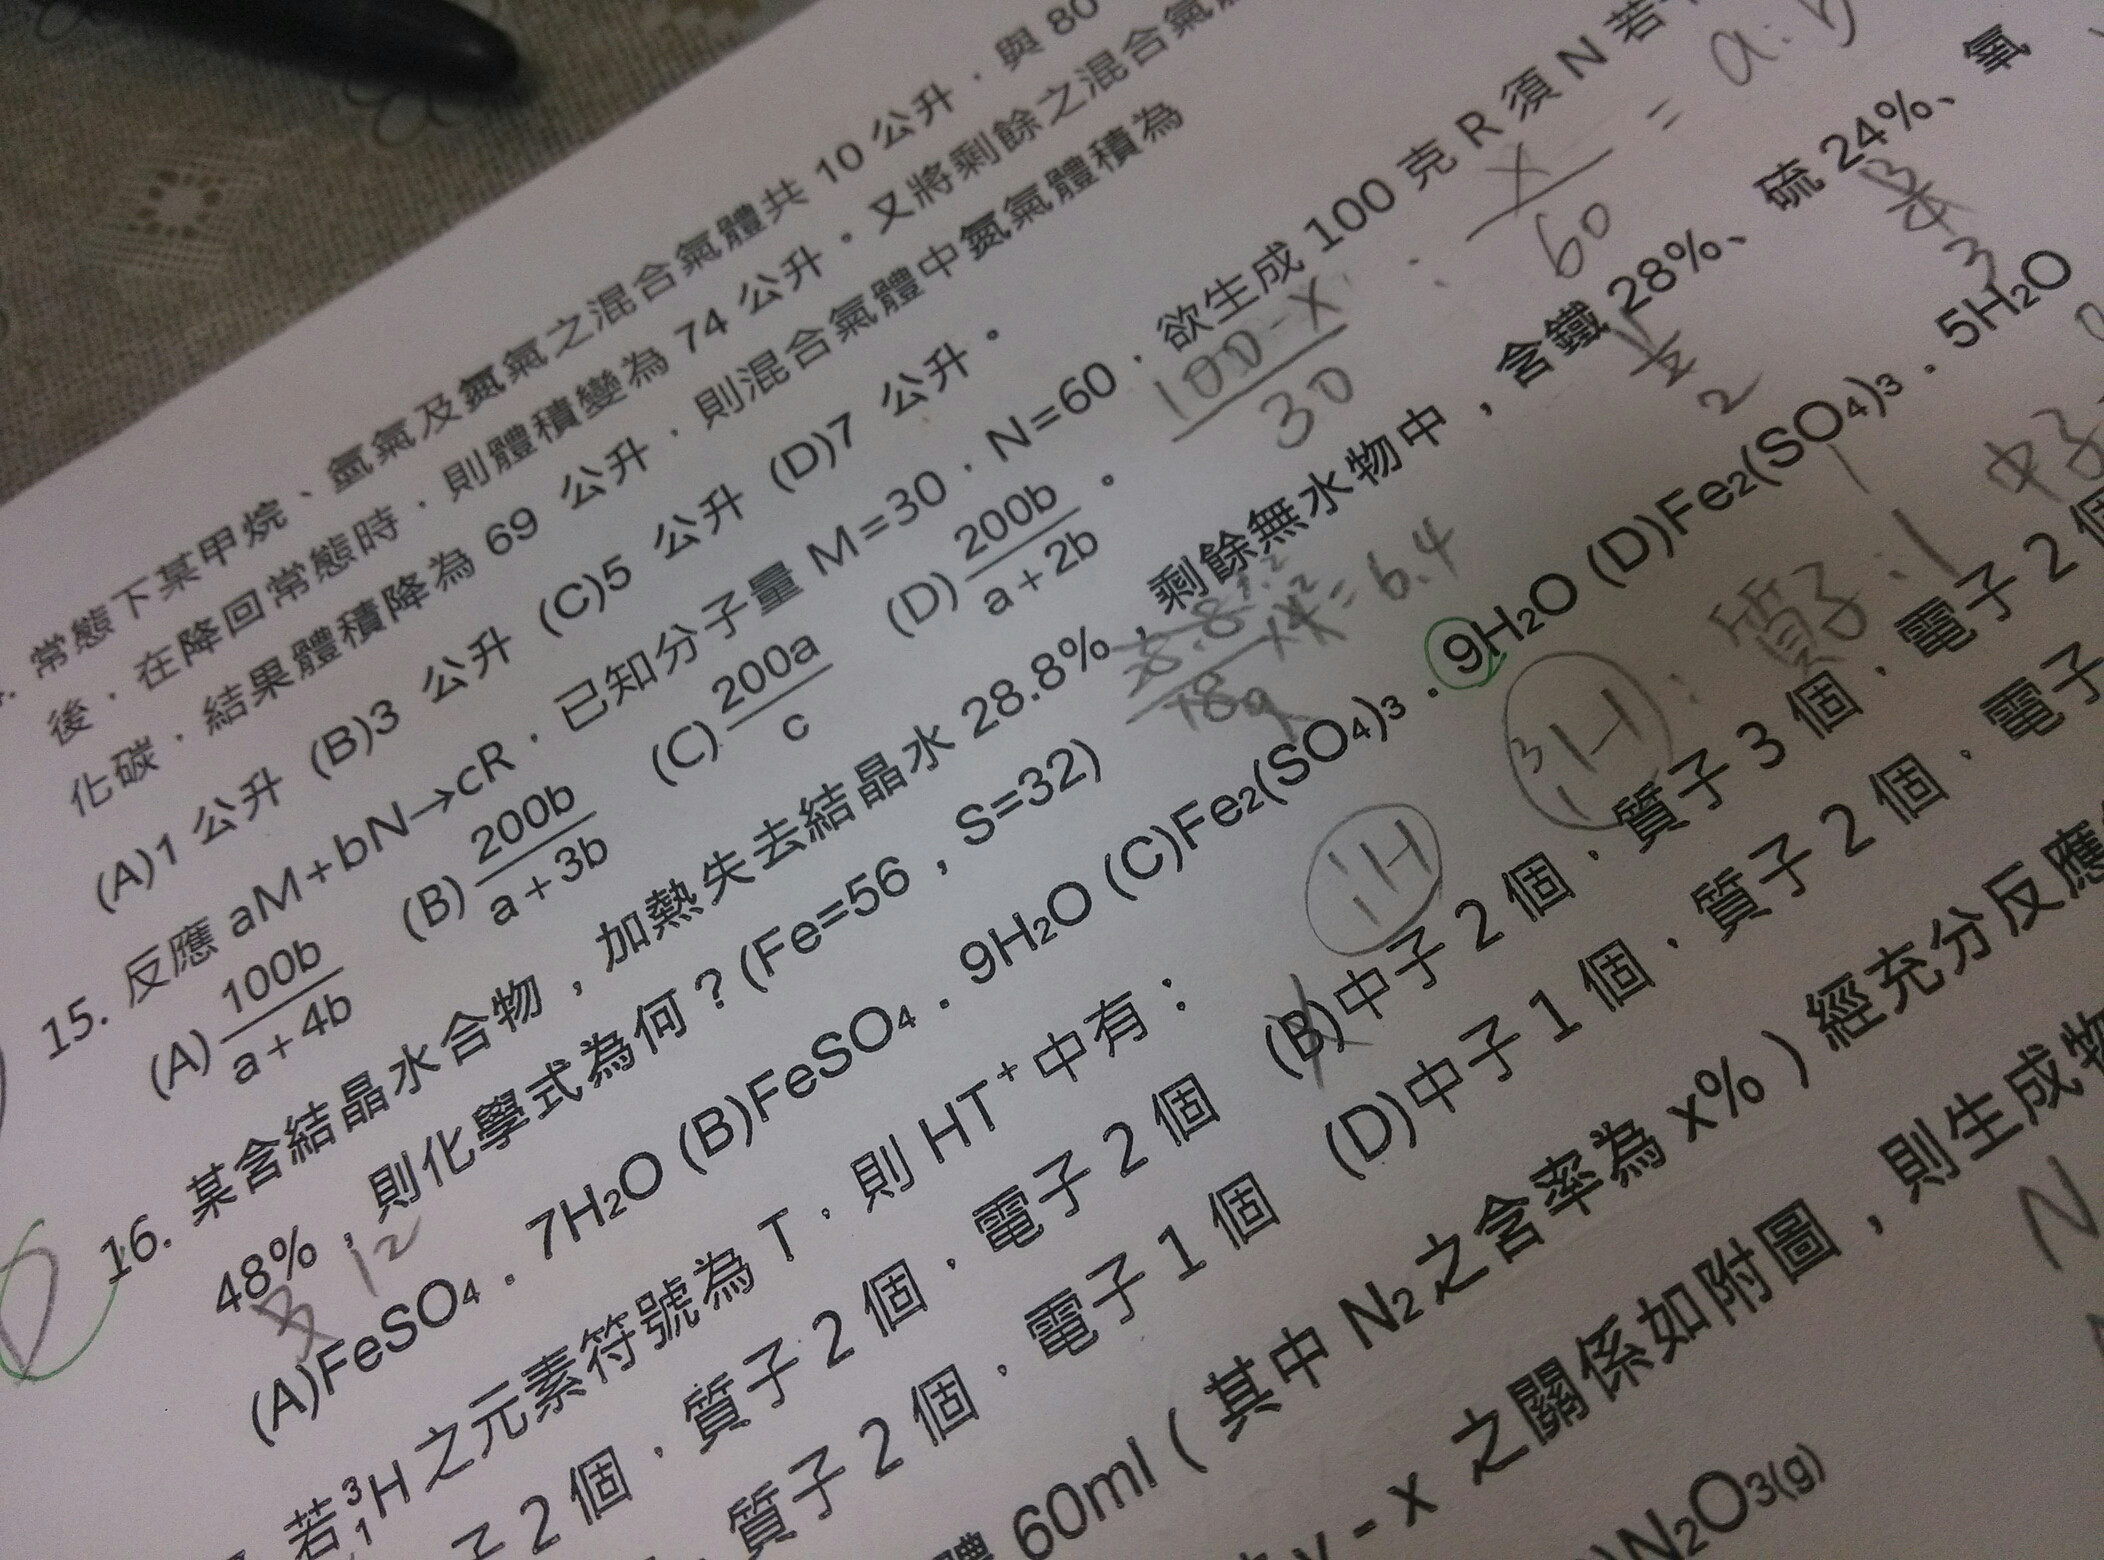 常態下某甲烷、氬氣及氮氣之混合氣體共 10 公升，與 80
後，在降回常態時，則體積變為 74 公升。又將剩餘之混合氣
化碳，結果體積降為 69 公升，則混合氣體中氮氣體積為
(A)1 公升 (B)3 公升 (C)5 公升 (D)7 公升。
15. 反應 aM+bN→cR，已知分子量 M=30，N=60，欲生成 100 克 R 須 N 若
(A) 100b/a+4b (B) 200b/a+3b (C) 200a/c (D) 200b/a+2b 。
100-x/30 : x/60 = a:b
16. 某含結晶水合物，加熱失去結晶水 28.8%，剩餘無水物中，含鐵 28%、硫 24%、氧
48%，則化學式為何？(Fe=56，S=32)
(A)FeSO₄．7H₂O (B)FeSO₄．9H₂O (C)Fe₂(SO₄)₃．9H₂O (D)Fe₂(SO₄)₃．5H₂O
3 12
2
3
=6.4
18
若³₁H 之元素符號為 T，則 HT⁺中有：
子 2 個，質子 2 個，電子 2 個 (B)中子 2 個，質子 3 個，電子 2 個
質子 2 個，電子 1 個 (D)中子 1 個，質子 2 個，電子
¹₁H
³₁H
質子:1
中子
體 60ml（其中 N₂之含率為 x%）經充分反應
y - x 之關係如附圖，則生成物
N₂O₃(g)
N